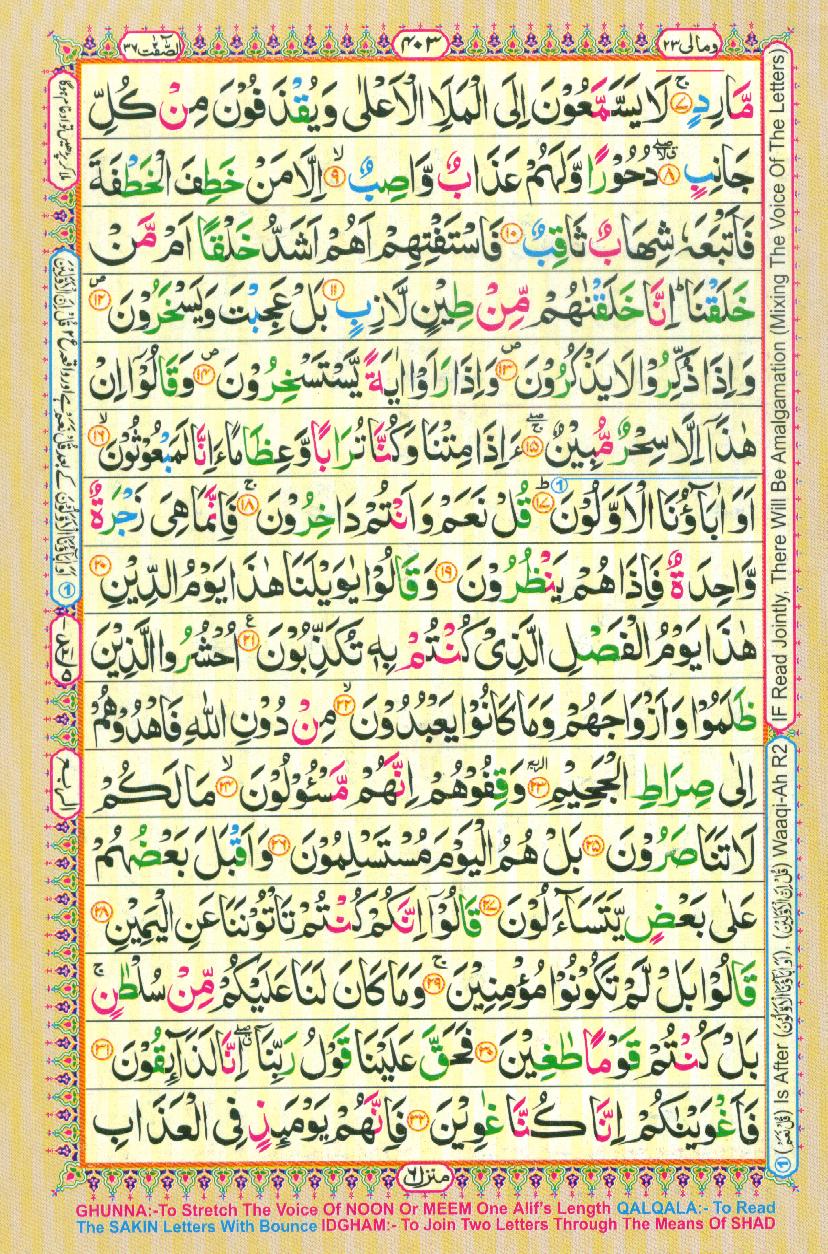 ومالی ۲۳
۴۰۳
الصّٰفّٰت ۳۷
مَّارِدٍ ۚ‏﴿۷﴾ لَا يَسَّمَّعُوْنَ اِلَى الْمَلَاِ الْاَعْلٰى وَيُقْذَفُوْنَ مِنْ كُلِّ
جَانِبٍ ﴿۸﴾ دُحُوْرًا وَّلَهُمْ عَذَابٌ وَّاصِبٌ ۙ‏﴿۹﴾ اِلَّا مَنْ خَطِفَ الْخَطْفَةَ
فَاَتْبَعَهٗ شِهَابٌ ثَاقِبٌ ﴿۱۰﴾ فَاسْتَفْتِهِمْ اَهُمْ اَشَدُّ خَلْقًا اَمْ مَّنْ
خَلَقْنَا ؕ اِنَّا خَلَقْنٰهُمْ مِّنْ طِيْنٍ لَّازِبٍ ﴿۱۱﴾ بَلْ عَجِبْتَ وَيَسْخَرُوْنَ ﴿۱۲﴾
وَاِذَا ذُكِّرُوْا لَا يَذْكُرُوْنَ ﴿۱۳﴾ وَاِذَا رَاَوْا اٰيَةً يَّسْتَسْخِرُوْنَ ﴿۱۴﴾ وَقَالُوْۤا اِنْ
هٰذَاۤ اِلَّا سِحْرٌ مُّبِيْنٌ ﴿۱۵﴾ ءَاِذَا مِتْنَا وَكُنَّا تُرَابًا وَّعِظَامًا ءَاِنَّا لَمَبْعُوْثُوْنَ ۙ‏﴿۱۶﴾
اَوَاٰبَآؤُنَا الْاَوَّلُوْنَ ؕ‏﴿۱۷﴾ قُلْ نَعَمْ وَاَنْتُمْ دَاخِرُوْنَ ۚ‏﴿۱۸﴾ فَاِنَّمَا هِىَ زَجْرَةٌ
وَّاحِدَةٌ فَاِذَا هُمْ يَنْظُرُوْنَ ﴿۱۹﴾ وَقَالُوْا يٰوَيْلَنَا هٰذَا يَوْمُ الدِّيْنِ ﴿۲۰﴾
هٰذَا يَوْمُ الْفَصْلِ الَّذِىْ كُنْتُمْ بِهٖ تُكَذِّبُوْنَ ﴿۲۱﴾ اُحْشُرُوا الَّذِيْنَ
ظَلَمُوْا وَاَزْوَاجَهُمْ وَمَا كَانُوْا يَعْبُدُوْنَ ۙ‏﴿۲۲﴾ مِنْ دُوْنِ اللّٰهِ فَاهْدُوْهُمْ
اِلٰى صِرَاطِ الْجَحِيْمِ ﴿۲۳﴾ وَقِفُوْهُمْ اِنَّهُمْ مَّسْـُٔوْلُوْنَ ۙ‏﴿۲۴﴾ مَا لَكُمْ
لَا تَنَاصَرُوْنَ ﴿۲۵﴾ بَلْ هُمُ الْيَوْمَ مُسْتَسْلِمُوْنَ ﴿۲۶﴾ وَاَقْبَلَ بَعْضُهُمْ
عَلٰى بَعْضٍ يَّتَسَآءَلُوْنَ ﴿۲۷﴾ قَالُوْۤا اِنَّكُمْ كُنْتُمْ تَاْتُوْنَنَا عَنِ الْيَمِيْنِ ﴿۲۸﴾
قَالُوْا بَلْ لَّمْ تَكُوْنُوْا مُؤْمِنِيْنَ ۚ‏﴿۲۹﴾ وَمَا كَانَ لَنَا عَلَيْكُمْ مِّنْ سُلْطٰنٍ ۚ
بَلْ كُنْتُمْ قَوْمًا طٰغِيْنَ ﴿۳۰﴾ فَحَقَّ عَلَيْنَا قَوْلُ رَبِّنَاۤ اِنَّا لَذَآئِقُوْنَ ﴿۳۱﴾
فَاَغْوَيْنٰكُمْ اِنَّا كُنَّا غٰوِيْنَ ﴿۳۲﴾ فَاِنَّهُمْ يَوْمَئِذٍ فِى الْعَذَابِ
منزل ۶
IF Read Jointly, There Will Be Amalgamation (Mixing The Voice Of The Letters)
① (قُلْ نَعَمْ) Is After (اَوَاٰبَآؤُنَا الْاَوَّلُوْنَ), (قُلْ اِنَّ الْاَوَّلِيْنَ) Waaqi-Ah R2
GHUNNA:-To Stretch The Voice Of NOON Or MEEM One Alif's Length QALQALA:- To Read
The SAKIN Letters With Bounce IDGHAM:- To Join Two Letters Through The Means Of SHAD